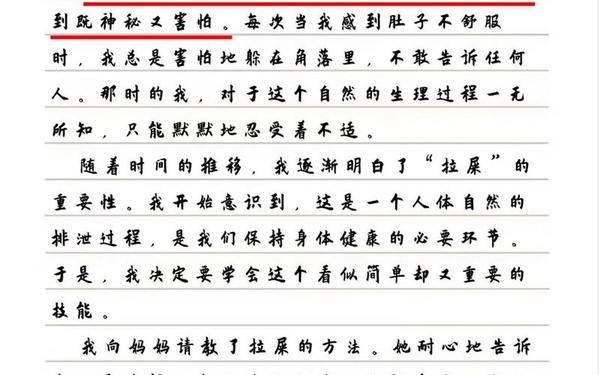 到既神秘又害怕。每次当我感到肚子不舒服
时，我总是害怕地躲在角落里，不敢告诉任何
人。那时的我，对于这个自然的生理过程一无
所知，只能默默地忍受着不适。
随着时间的推移，我逐渐明白了“拉屎”的
重要性。我开始意识到，这是一个人体自然的
排泄过程，是我们保持身体健康的必要环节。
于是，我决定要学会这个看似简单却又重要的
技能。
我向妈妈请教了拉屎的方法。她耐心地告诉